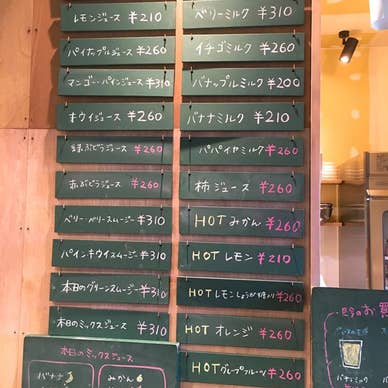 レモンジュース ¥210
パイナップルジュース ¥260
マンゴー・パインジュース ¥310
キウイジュース ¥260
緑ぶどうジュース ¥260
赤ぶどうジュース ¥260
ベリー・ベリースムージー ¥310
パインキウイスムージー ¥310
本日のグリーンスムージー ¥310
本日のミックスジュース ¥310
本日のミックスジュース
バナナ
みかん
ベリーミルク ¥310
イチゴミルク ¥260
バナップルミルク ¥200
バナナミルク ¥210
パパイヤミルク ¥260
柿ジュース ¥260
HOT みかん ¥260
HOT レモン ¥210
HOT レモンしょうが ¥260
HOT オレンジ ¥260
HOT グレープフルーツ ¥260